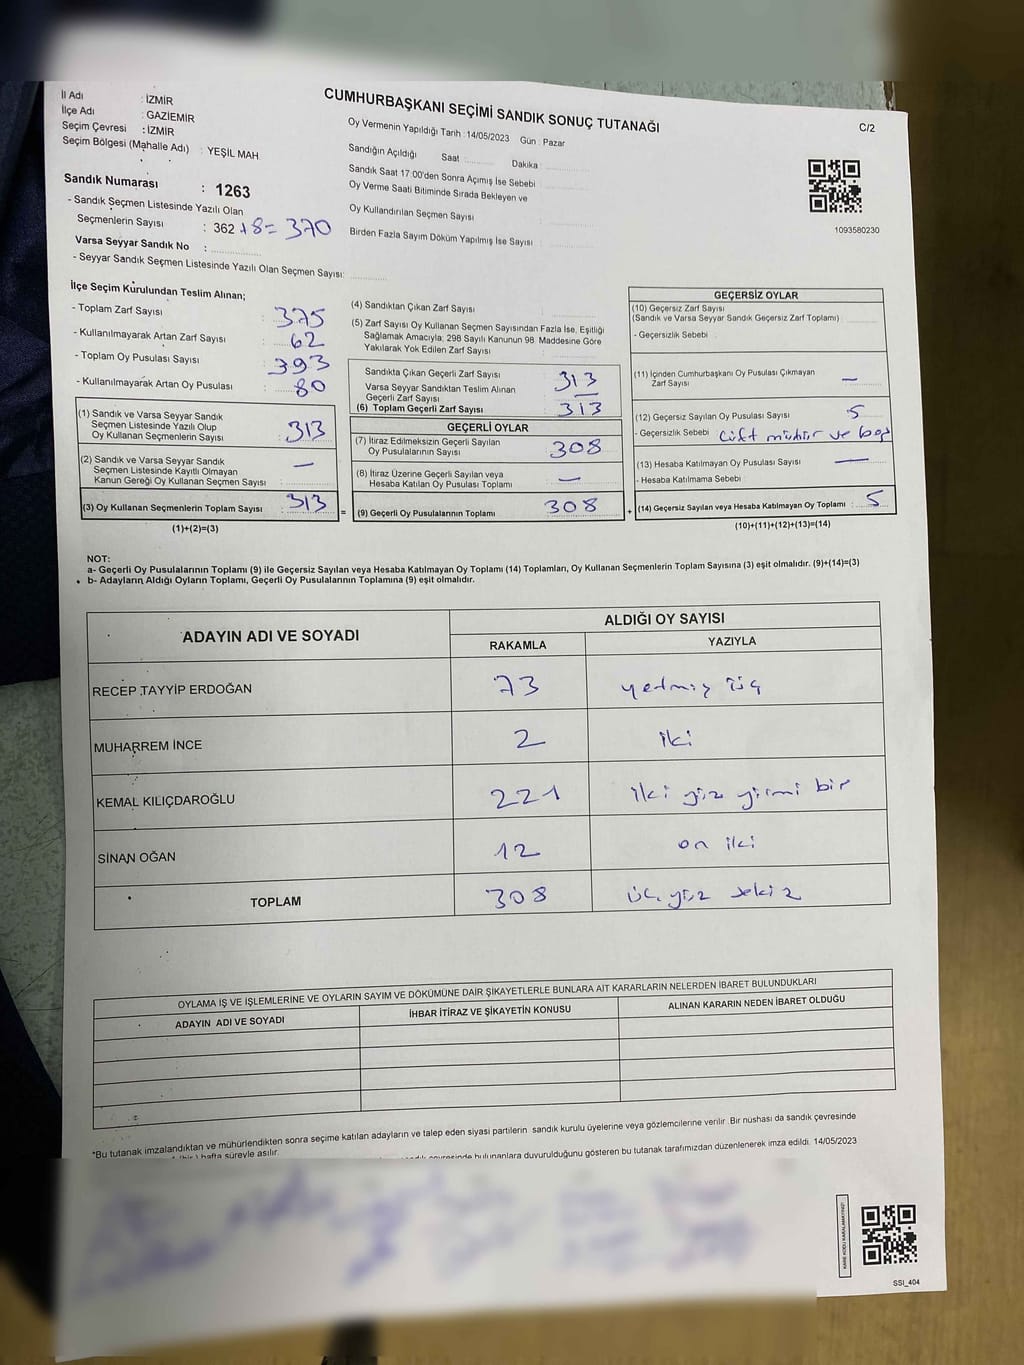 İl Adı : İZMİR
İlçe Adı : GAZİEMİR
Seçim Çevresi : İZMİR
Seçim Bölgesi (Mahalle Adı) : YEŞİL MAH
Sandık Numarası : 1263
- Sandık Seçmen Listesinde Yazılı Olan
Seçmenlerin Sayısı : 362 +8= 370
Varsa Seyyar Sandık No :
- Seyyar Sandık Seçmen Listesinde Yazılı Olan Seçmen Sayısı:
CUMHURBAŞKANI SEÇİMİ SANDIK SONUÇ TUTANAĞI
C/2
Oy Vermenin Yapıldığı Tarih : 14/05/2023 Gün : Pazar
Sandığın Açıldığı Saat Dakika
Sandık Saat 17:00'den Sonra Açımış İse Sebebi
Oy Verme Saati Bitiminde Sırada Bekleyen ve
Oy Kullandırılan Seçmen Sayısı
Birden Fazla Sayım Döküm Yapılmış İse Sayısı
1093580230
İlçe Seçim Kurulundan Teslim Alınan;
- Toplam Zarf Sayısı : 375
- Kullanılmayarak Artan Zarf Sayısı : 62
- Toplam Oy Pusulası Sayısı : 393
- Kullanılmayarak Artan Oy Pusulası : 80
(1) Sandık ve Varsa Seyyar Sandık
Seçmen Listesinde Yazılı Olup
Oy Kullanan Seçmenlerin Sayısı : 313
(2) Sandık ve Varsa Seyyar Sandık
Seçmen Listesinde Kayıtlı Olmayan
Kanun Gereği Oy Kullanan Seçmen Sayısı : —
(3) Oy Kullanan Seçmenlerin Toplam Sayısı : 313
(1)+(2)=(3)
(4) Sandıktan Çıkan Zarf Sayısı
(5) Zarf Sayısı Oy Kullanan Seçmen Sayısından Fazla İse, Eşitliği
Sağlamak Amacıyla; 298 Sayılı Kanunun 98. Maddesine Göre
Yakılarak Yok Edilen Zarf Sayısı
Sandıkta Çıkan Geçerli Zarf Sayısı : 313
Varsa Seyyar Sandıktan Teslim Alınan
Geçerli Zarf Sayısı : —
(6) Toplam Geçerli Zarf Sayısı : 313
GEÇERLİ OYLAR
(7) İtiraz Edilmeksizin Geçerli Sayılan
Oy Pusulalarının Sayısı : 308
(8) İtiraz Üzerine Geçerli Sayılan veya
Hesaba Katılan Oy Pusulası Toplamı : —
= (9) Geçerli Oy Pusulalarının Toplamı : 308
GEÇERSİZ OYLAR
(10) Geçersiz Zarf Sayısı
(Sandık ve Varsa Seyyar Sandık Geçersiz Zarf Toplamı) :
- Geçersizlik Sebebi :
(11) İçinden Cumhurbaşkanı Oy Pusulası Çıkmayan
Zarf Sayısı : —
(12) Geçersiz Sayılan Oy Pusulası Sayısı : 5
- Geçersizlik Sebebi : Çift mühür ve boş
(13) Hesaba Katılmayan Oy Pusulası Sayısı : —
- Hesaba Katılmama Sebebi
+ (14) Geçersiz Sayılan veya Hesaba Katılmayan Oy Toplamı : 5
(10)+(11)+(12)+(13)=(14)
NOT:
a- Geçerli Oy Pusulalarının Toplamı (9) ile Geçersiz Sayılan veya Hesaba Katılmayan Oy Toplamı (14) Toplamları, Oy Kullanan Seçmenlerin Toplam Sayısına (3) eşit olmalıdır. (9)+(14)=(3)
b- Adayların Aldığı Oyların Toplamı, Geçerli Oy Pusulalarının Toplamına (9) eşit olmalıdır.
ADAYIN ADI VE SOYADI
ALDIĞI OY SAYISI
RAKAMLA YAZIYLA
RECEP TAYYİP ERDOĞAN 73 yetmiş üç
MUHARREM İNCE 2 iki
KEMAL KILIÇDAROĞLU 221 iki yüz yirmi bir
SİNAN OĞAN 12 on iki
TOPLAM 308 üç yüz sekiz
OYLAMA İŞ VE İŞLEMLERİNE VE OYLARIN SAYIM VE DÖKÜMÜNE DAİR ŞİKAYETLERLE BUNLARA AİT KARARLARIN NELERDEN İBARET BULUNDUKLARI
ADAYIN ADI VE SOYADI İHBAR İTİRAZ VE ŞİKAYETİN KONUSU ALINAN KARARIN NEDEN İBARET OLDUĞU
*Bu tutanak imzalandıktan ve mühürlendikten sonra seçime katılan adayların ve talep eden siyasi partilerin sandık kurulu üyelerine veya gözlemcilerine verilir. Bir nüshası da sandık çevresinde
(bir) hafta süreyle asılır.
bulunanlara duyurulduğunu gösteren bu tutanak tarafımızdan düzenlenerek imza edildi. 14/05/2023
KARE KODU KARALAMAYINIZ!
SSI_404